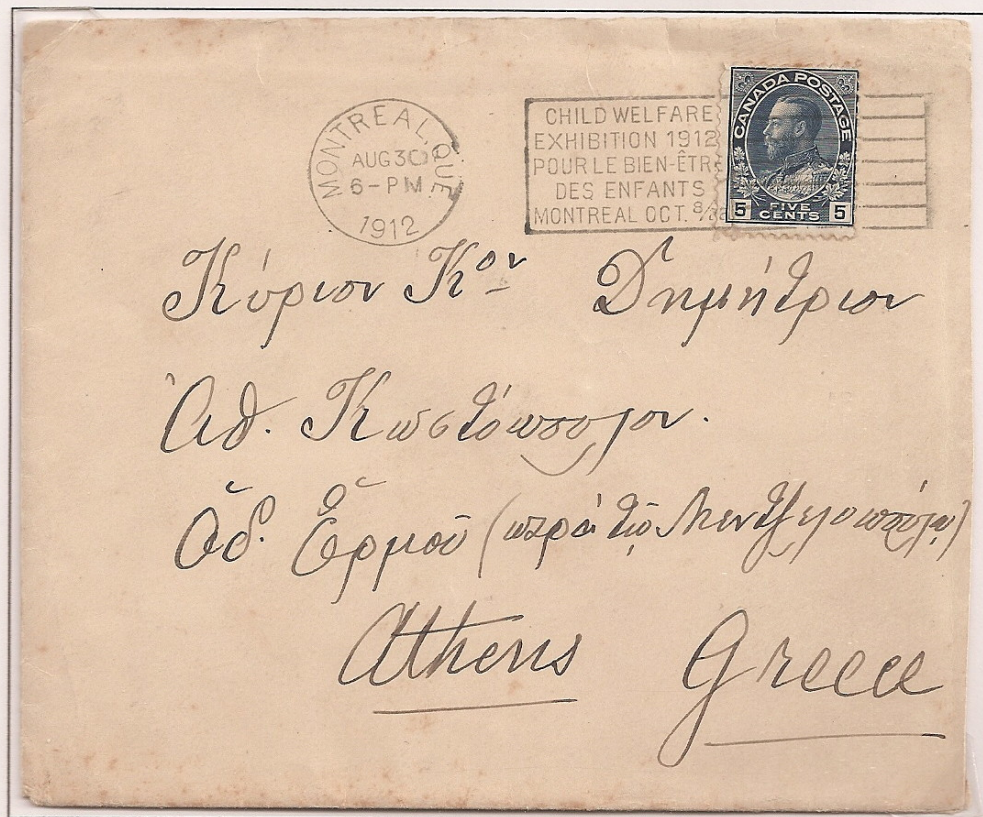 MONTREAL, QUE.
AUG 30
6 - PM
1912
CHILD WELFARE
EXHIBITION 1912
POUR LE BIEN-ÊTRE
DES ENFANTS
MONTREAL OCT.
CANADA POSTAGE
5 FIVE CENTS 5
Κύριον Κον Δημήτριον
Ἀθ. Κωστόπουλον.
Ὁδ. Ἑρμοῦ (παρὰ τῷ
Athens Greece